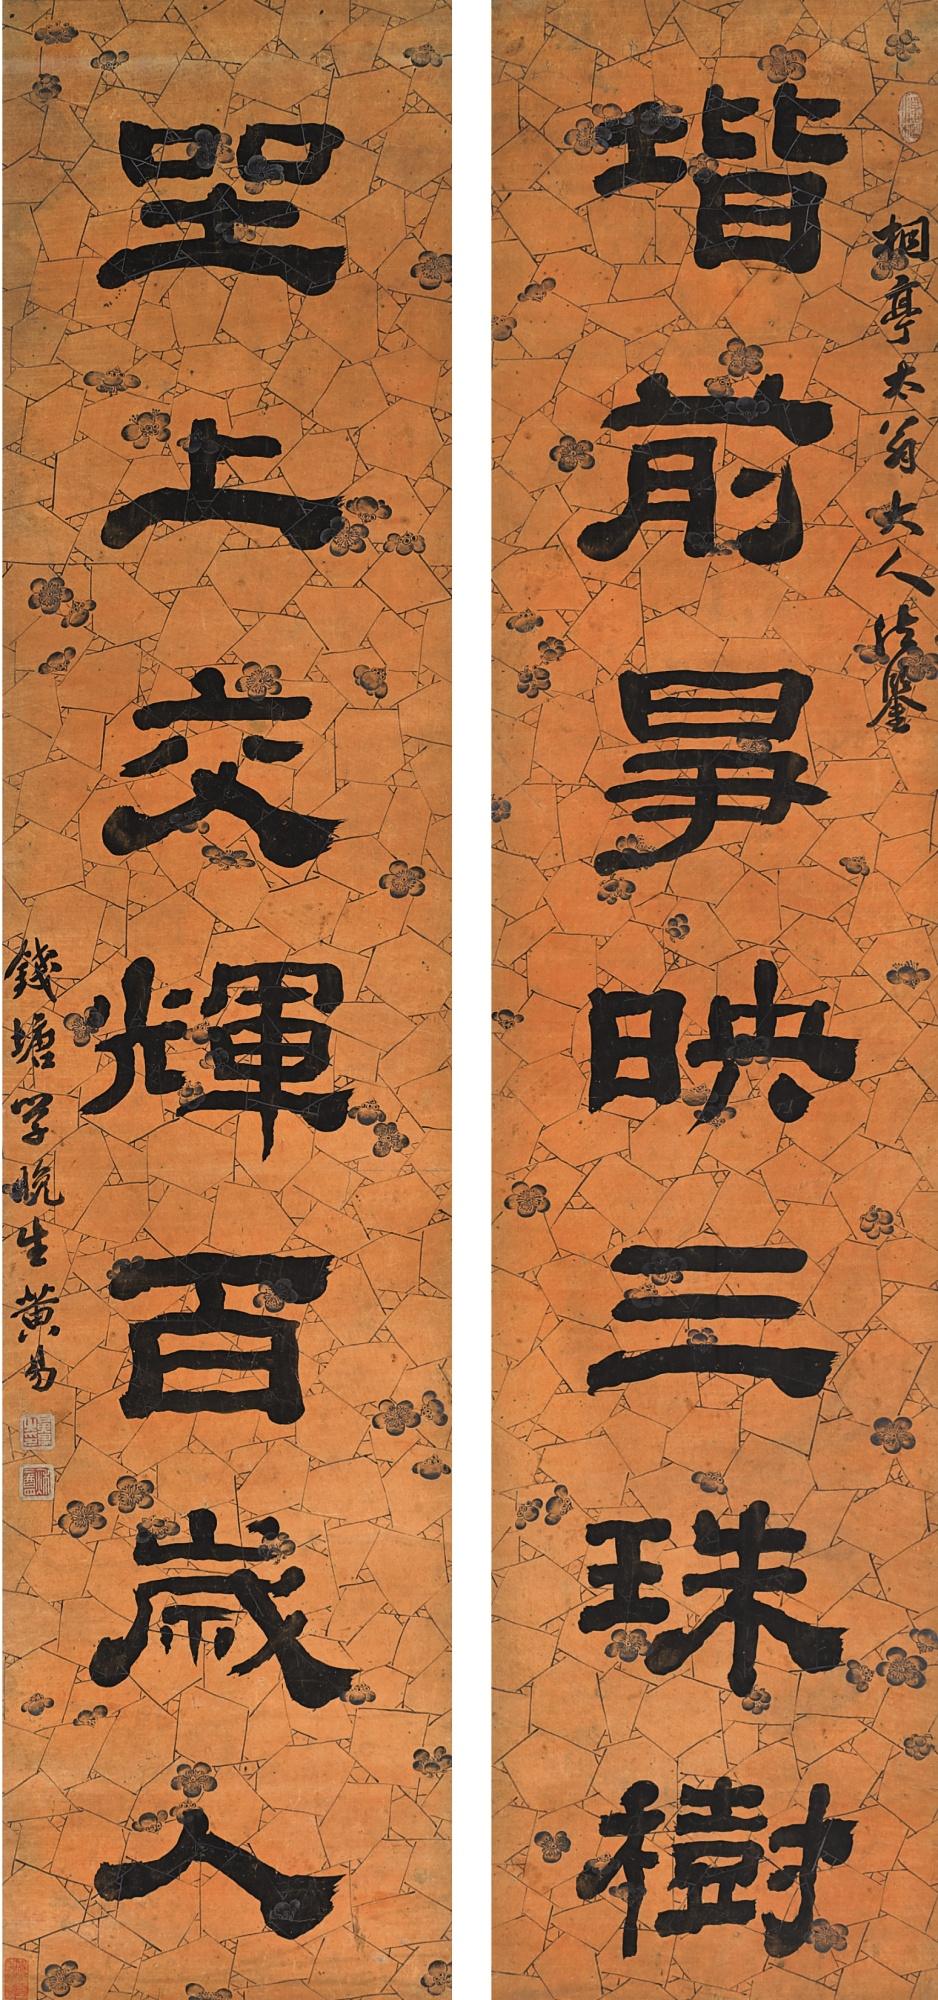 桐亭太翁大人法鑒
堦前爭映三珠樹
㘴上交輝百歲人
錢塘学晚生黄易